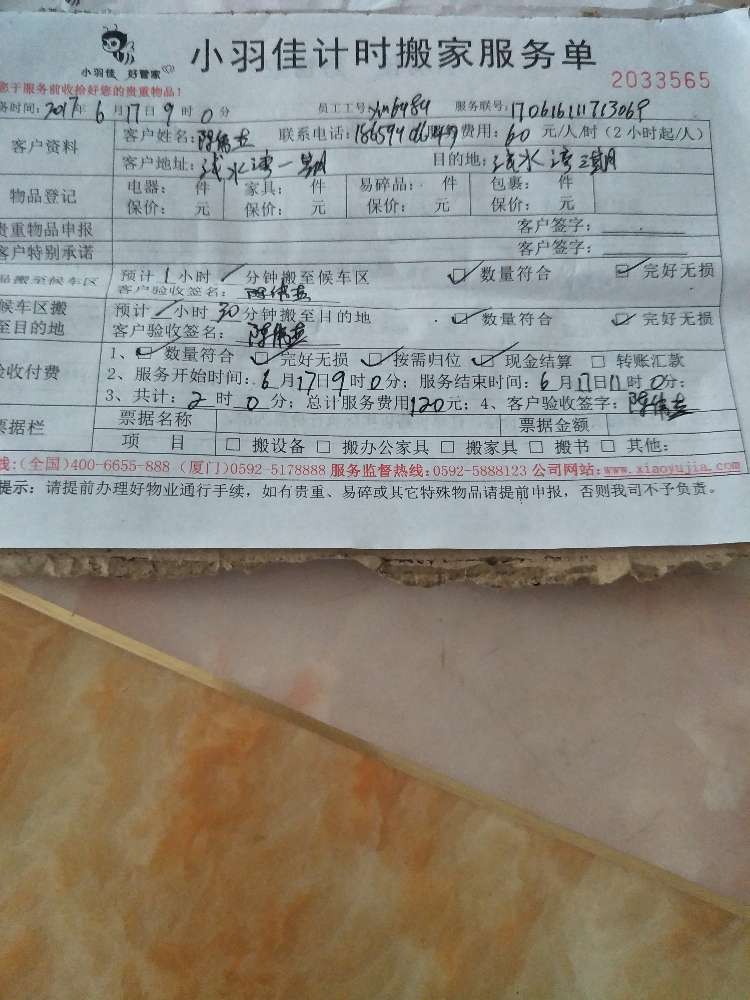 小羽佳 好管家
小羽佳计时搬家服务单
2033565
您于服务前收拾好您的贵重物品！
务时间：2017年 6月17日9时0分 员工工号：xm6484 服务联号：17061611713069
客户资料
客户姓名：陈 联系电话： 费用：60元/人/时（2小时起/人）
客户地址：浅水湾一期 目的地：浅水湾三期
物品登记
电器： 件 家具： 件 易碎品： 件 包裹： 件
保价： 元 保价： 元 保价： 元 保价： 元
贵重物品申报 客户签字：
客户特别承诺 客户签字：
品搬至候车区
预计1小时 分钟搬至候车区 ☑数量符合 ☑完好无损
客户验收签名：陈
候车区搬
至目的地
预计 小时30分钟搬至目的地 ☑数量符合 ☑完好无损
客户验收签名：陈
验收付费
1、☑数量符合 ☑完好无损 ☑按需归位 ☑现金结算 □转账汇款
2、服务开始时间：6月17日9时0分；服务结束时间：6月17日11时0分；
3、共计：2时0分；总计服务费用120元；4、客户验收签字：陈
票据栏
票据名称 票据金额
项 目 □搬设备 □搬办公家具 □搬家具 □搬书 □其他：
线：(全国)400-6655-888（厦门)0592-5178888 服务监督热线：0592-5888123 公司网站：www.xiaoyujia.com
提示：请提前办理好物业通行手续，如有贵重、易碎或其它特殊物品请提前申报，否则我司不予负责。